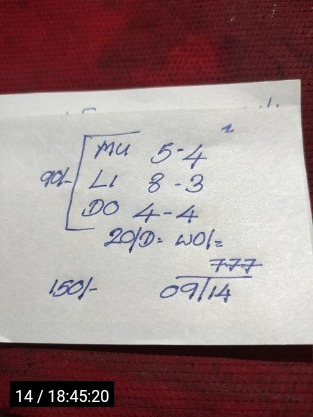 2
MU 5-4
90/- LI 8-3
DO 4-4
20/D= WO/=
777
150/- 09/14
14 / 18:45:20